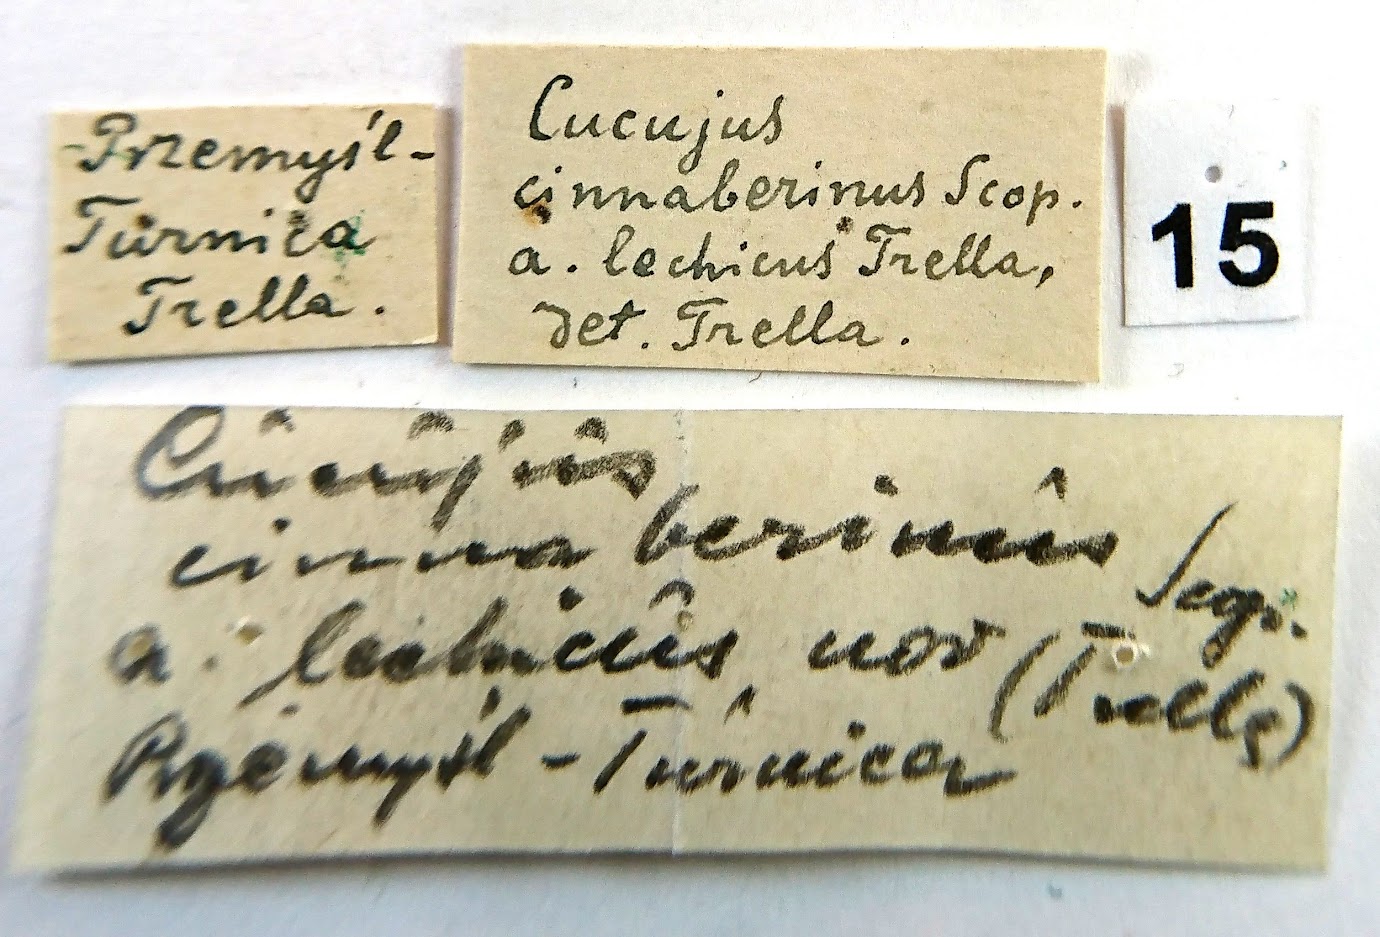 Przemyśl-
Turnica
Trella.
Cucujus
cinnaberinus Scop.
a. lechicus Trella,
det. Trella.
15
Cucujus
cinnaberinus Scop.
a. lechicus nov (Trella)
Przemyśl - Turnica